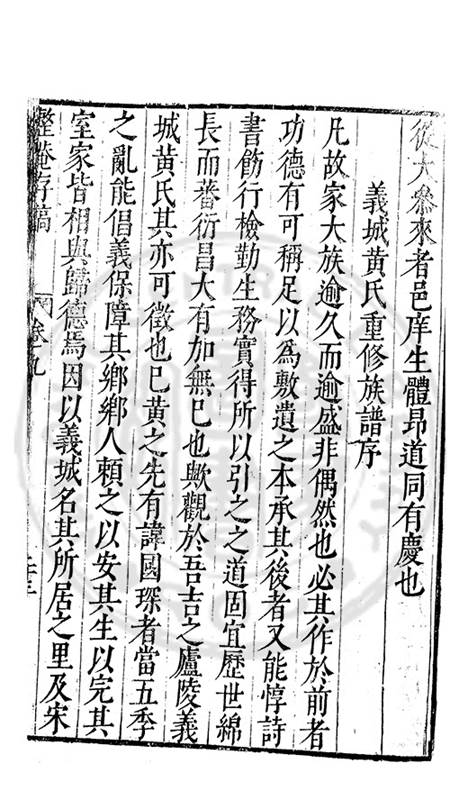 從大參來者邑庠生體昂道同有慶也
義城黃氏重修族譜序
凡故家大族逾久而逾盛非偶然也必其作於前者
功德有可稱足以爲敷遺之本承其後者又能惇詩
書飭行檢勤生務實得所以引之之道固宜歷世綿
長而蕃衍昌大有加無已也歟觀於吾吉之廬陵義
城黃氏其亦可徵也已黃之先有諱國琛者當五季
之亂能倡義保障其鄉鄉人賴之以安其生以完其
室家皆相與歸德焉因以義城名其所居之里及宋
整菴存稿 卷九